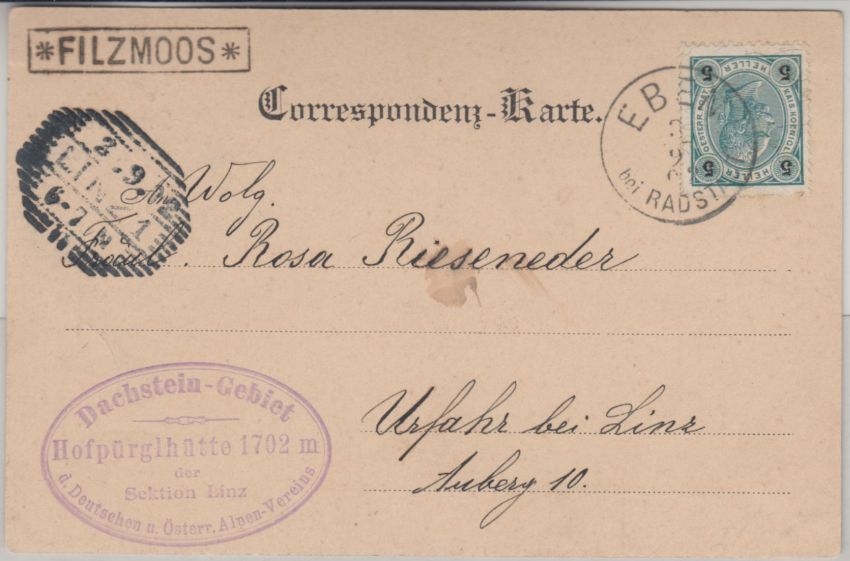 *FILZMOOS*
Correspondenz-Karte.
5 HELLER 5
KAIS. KOENIGL. OESTERR. POST
5 HELLER 5
EB
bei RADST
LINZ 1
6-7
An Wolg.
Fräul. Rosa Rieseneder
Urfahr bei Linz
Auberg 10.
Dachstein-Gebiet
Hofpürglhütte 1702 m
der
Sektion Linz
d. Deutschen u. Österr. Alpen-Vereins